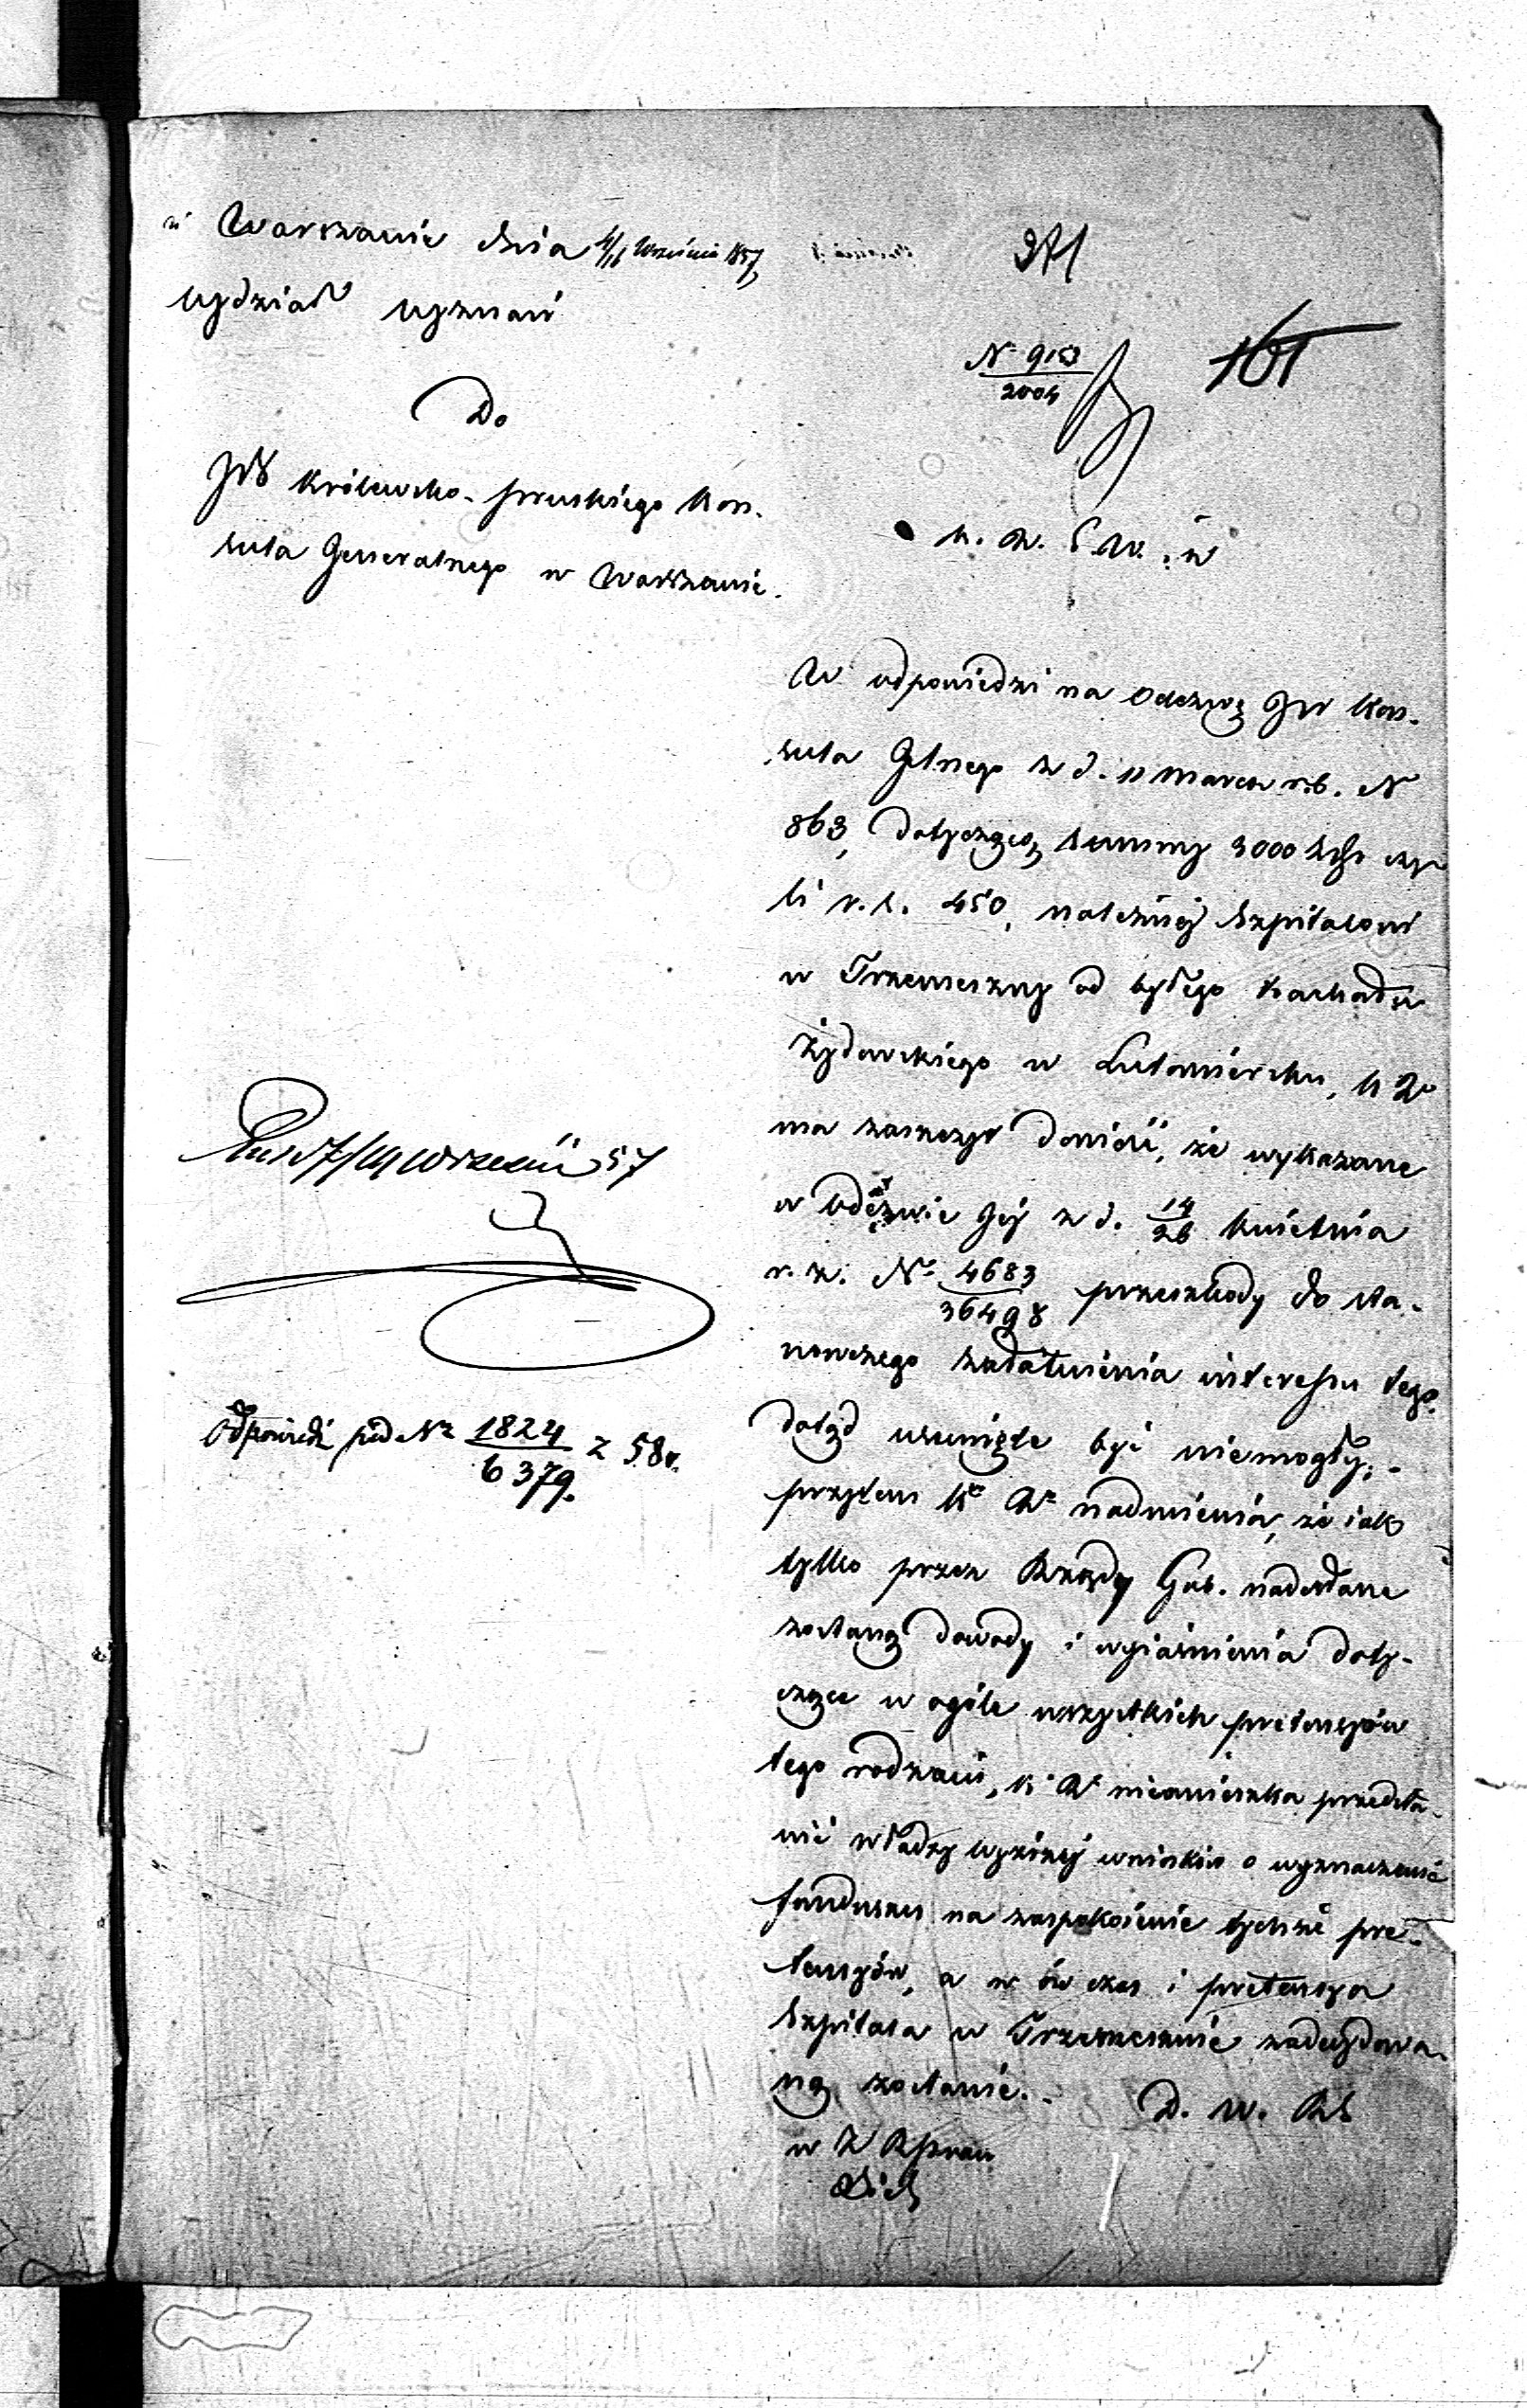 w Warszawie dnia 4/16 Września 1857
Wydział Wyznań
Do
JW Królewsko-pruskiego Kon-
sula Generalnego w Warszawie.
371
N 913/2004
161
K. R. S. W. i
W odpowiedzi na odezwę JW Kon-
sula Gelnego z d. 11 Marca r.b. N
863, dotyczącą summy 3000 złp czy-
li r.s. 450, należnéj Szpitalowi
w Trzemeszny od byłego Kachału
Żydowskiego w Lutomiersku, K
ma zaszczyt donieść, że wykazane
w odezwie Jéj z d. 14/26 Kwietnia
r.z. No 4683/36498 przeszkody do sta-
nowczego załatwienia interessu tego
dotąd usunięte być niemogły; -
przytem K R nadmienia, że jak
tylko przez Rządy Gub. nadesłane
zostaną dowody i wyjaśnienia doty-
czące w ogóle wszystkich pretensyów
tego rodzaju, K R nieomieszka przedsta-
wić władzy wyższéj wnioski o wyznaczenie
funduszu na zaspokojenie tychże pre-
tensyów, a w ów czas i pretensya
Szpitala w Trzemesznie zadecydowa-
ną zostanie. -
D. W.
w Z
Września 57
Odpowiedź pod Nr 1824/6379. z 58 r.